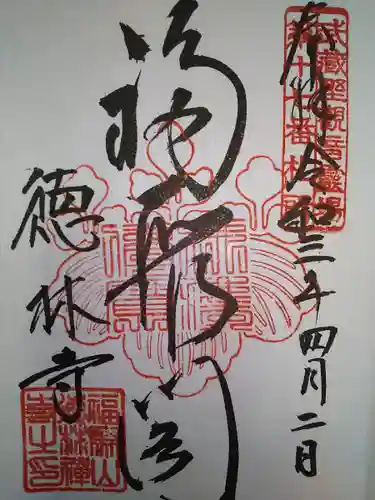 奉拝 令和三年四月二日
武蔵野観音霊場
第十七番札所
福聚閣
徳林寺
福聚山
徳林禅
寺之印